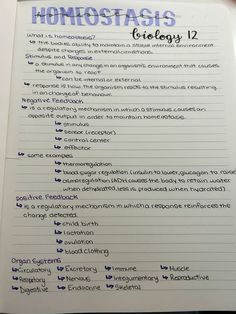 HOMEOSTASIS
biology 12
What is homeostasis?
↳ the bodies ability to maintain a stable internal environment
despite changes in external conditions.
Stimulus and Response
↳ a stimulus in any change in an organisms environment that causes
the organism to react
↳ can be internal or external
↳ response is how the organism reacts to the stimulus resulting
in an change of behaviour.
Negative Feedback
↳ is a regulatory mechanism in which a stimulus causes an
opposite output in order to maintain homeostasis.
↳ stimulus
↳ sensor (receptor)
↳ control center
↳ effector
↳ some examples
↳ thermoregulation
↳ blood sugar regulation (insulin to lower, glucagon to raise
↳ osmoregulation (ADH causes the body to retain water
when dehydrated, less is produced when hydrated)
positive Feedback
↳ is a regulatory mechanism in which a response reinforces the
change detected
↳ child birth
↳ lactation
↳ ovulation
↳ blood clotting
Organ Systems
↳ Circulatory ↳ Excretory ↳ Immune ↳ Muscle
↳ Respiratory ↳ Nervous ↳ Integumentary ↳ Reproductive
↳ Digestive ↳ Endocrine ↳ Skeletal